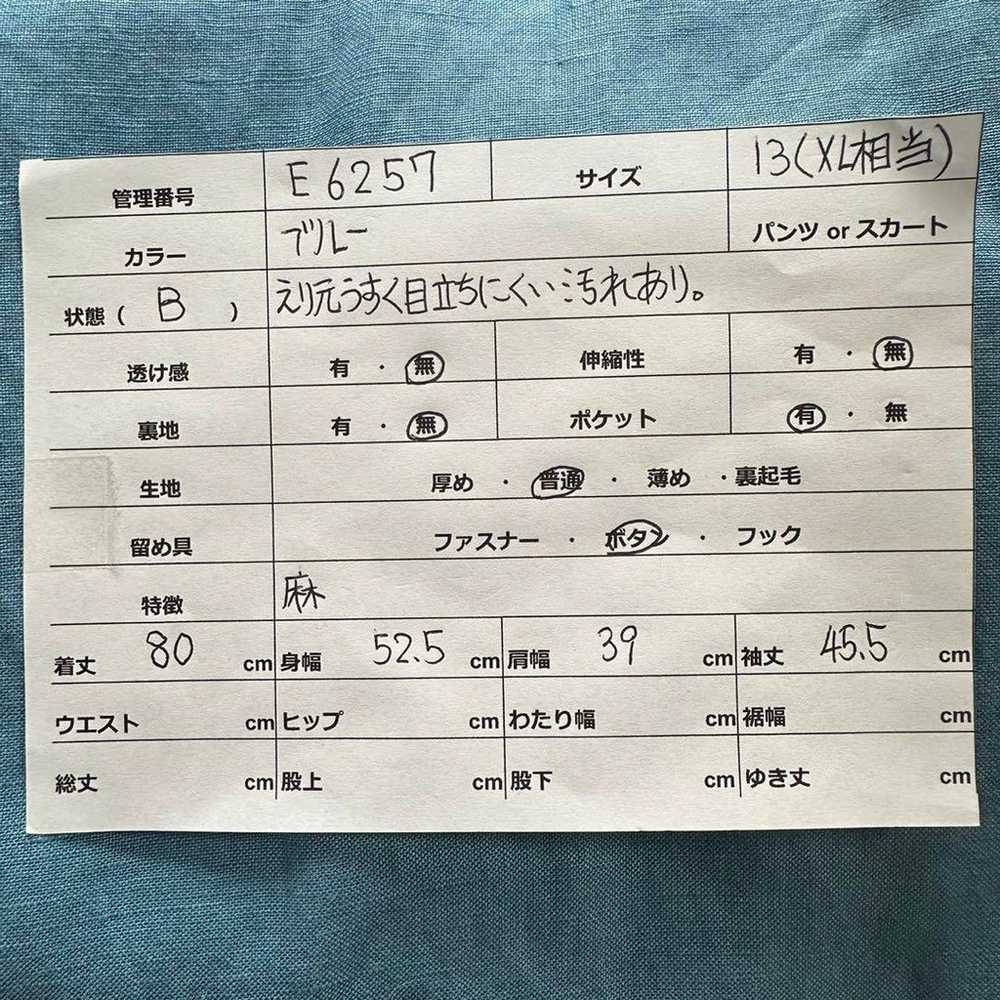 管理番号 E6257 サイズ 13(XL相当)
カラー ブルー パンツ or スカート
状態( B ) えり元うすく目立ちにくい汚れあり。
透け感 有 ・ 無 伸縮性 有 ・ 無
裏地 有 ・ 無 ポケット 有 ・ 無
生地 厚め ・ 普通 ・ 薄め ・裏起毛
留め具 ファスナー ・ ボタン ・ フック
特徴 麻
着丈 80 cm 身幅 52.5 cm 肩幅 39 cm 袖丈 45.5 cm
ウエスト cm ヒップ cm わたり幅 cm 裾幅 cm
総丈 cm 股上 cm 股下 cm ゆき丈 cm